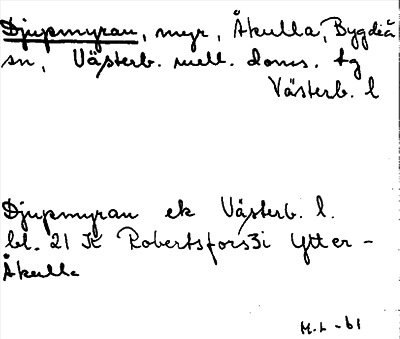 Djupmyran, myr, Åkulla, Bygdeå
sn, Västerb. mell. doms. tg
Västerb. l
Djupmyran ek Västerb. l.
bl. 21 K Robertsfors3i Ytter-
Åkulla
M.L -61